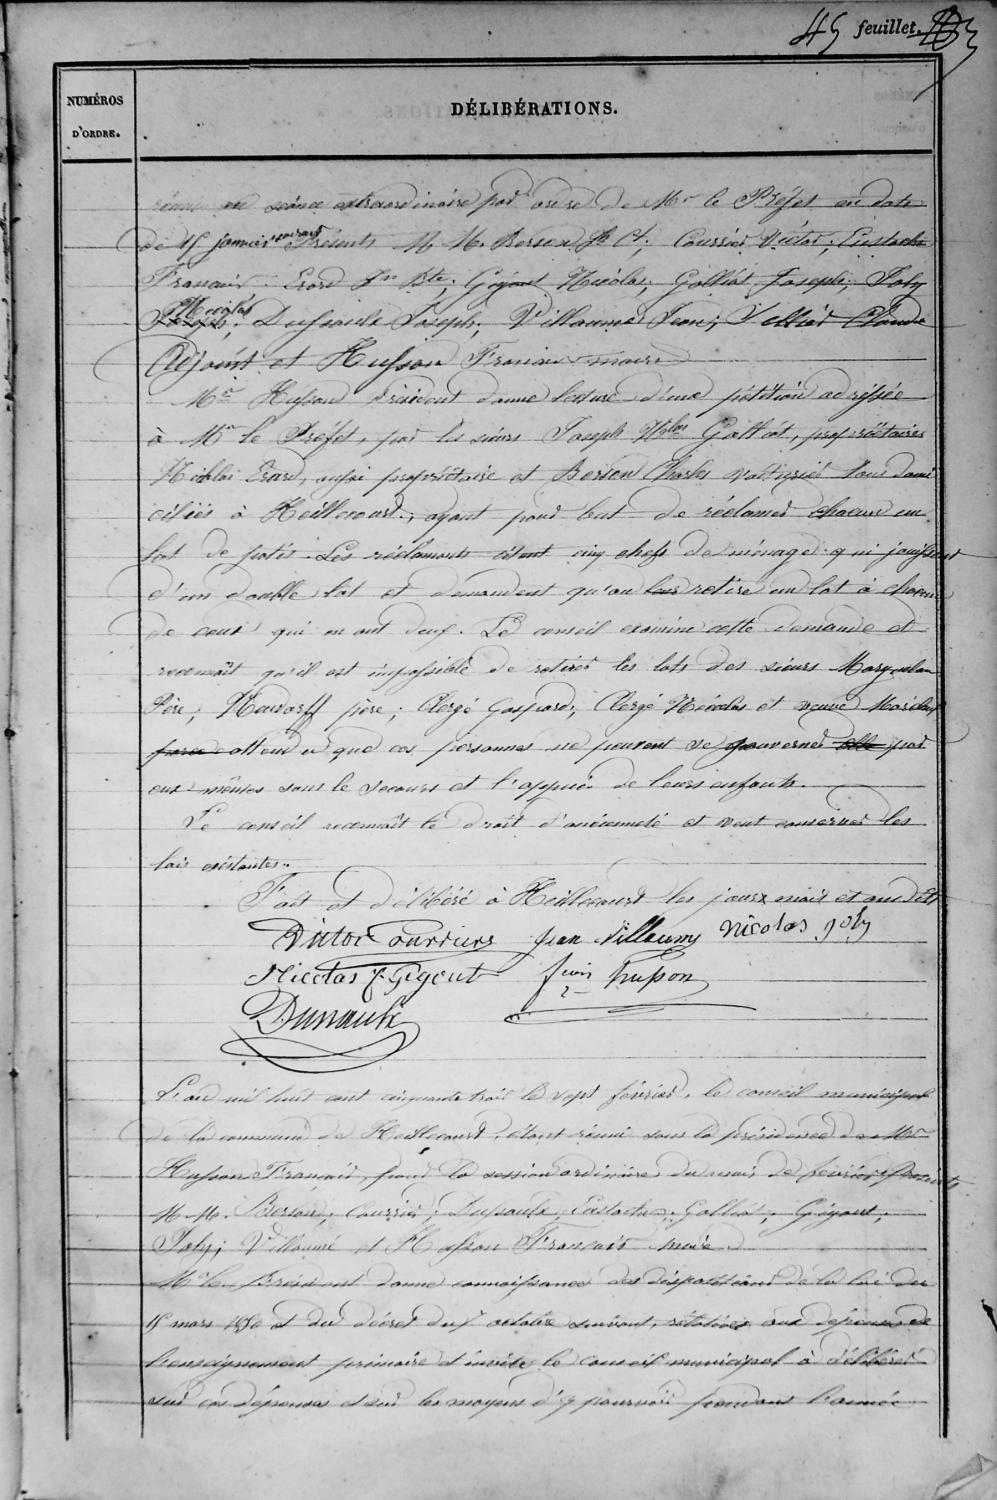 45 feuillet.
NUMÉROS
D'ORDRE.
DÉLIBÉRATIONS.
réuni en séance extraordinaire par ordre de Mr le Préfet en date
de 15 janvier courant Présents M M. Berson Jh Ct; Courrier Victor; Eustache
Francois Erard Jn Bte; Gégout Nicolas; Galliot Joseph; Joly
Nicolas; Dussaulx Joseph; Villaume Jean; Vellier Claude
Adjoint et Husson Francois maire
Mr Husson Président donne lecture d'une pétition adressée
à Mr le Préfet, par les sieurs Joseph Nlas Galliot, propriétaires
Nicolas Erard, aussi propriétaire et Berson Charles voiturier tous domi
ciliés à Heillecourt, ayant pour but de réclamer chacun un
lot de patis. Les réclamants citent cinq chefs de ménage qui jouissent
d'un double lot et demandent qu'on leur retire un lot à chacun
de ceux qui en ont deux. Le conseil examine cette demande et
reconnaît qu'il est impossible de retirer les lots des sieurs
Père; père; Clergé Gaspard; Clergé Nicolas et veuve
parce attendu que ces personnes ne peuvent se gouverner elle par
eux mêmes sans le secours et l'appui de leurs enfants.
Le conseil reconnaît le droit d'ancienneté et veut conserver les
lois existantes.
Fait et délibéré à Heillecourt les jours mois et an dits
Victor Courriers Jean Villaume Nicolas Joly
Nicolas f. Gégout fcois husson
Dussaulx
L'an mil huit cent cinquante trois le sept février, le conseil municipal
de la commune de Heillecourt, étant réuni sous la présidence de Mr
Husson Francois, pour la session ordinaire du mois de février Présents
M M. Berson; Courrier; Dussaulx; Eustache; Galliot; Gégout;
Joly; Villaume et Husson Francois maire.
Mr le Président donne connaissance des dispositions de la loi du
15 mars 1850 et du décret du 7 octobre suivant, relatives aux dépenses de
l'enseignement primaire et invite le conseil municipal à délibérer
sur ces dépenses et sur les moyens d'y pourvoir pendant l'année